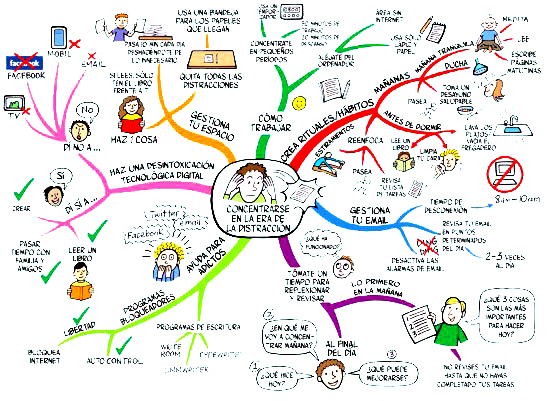 CONCENTRARSE
EN LA ERA DE
LA DISTRACCIÓN
CREA RITUALES/HÁBITOS
MAÑANAS
MAÑANA TRANQUILA
MEDITA
LEE
ESCRIBE
PÁGINAS
MATUTINAS
DUCHA
TOMA UN
DESAYUNO
SALUDABLE
PASEA
ANTES DE DORMIR
LAVA LOS
PLATOS-
VACÍA EL
FREGADERO
LIMPIA
TU CARA
LEE UN
LIBRO
REVISA
TU LISTA
DE TAREAS
ESTIRAMIENTOS
REENFOCA
PASEA
GESTIONA
TU EMAIL
TIEMPO DE
DESCONEXIÓN
8am - 10am
REVISA TU EMAIL
EN PUNTOS
DETERMINADOS
DEL DÍA
2-3 VECES
AL DÍA
DING
DING
DESACTIVA LAS
ALARMAS DE EMAIL
TÓMATE UN
TIEMPO PARA
REFLEXIONAR
Y REVISAR
¿QUÉ HA
FUNCIONADO?
LO PRIMERO
EN LA MAÑANA
¿QUÉ 3 COSAS
SON LAS MÁS
IMPORTANTES
PARA HACER
HOY?
NO REVISES TU EMAIL
HASTA QUE NO HAYAS
COMPLETADO TUS TAREAS
AL FINAL
DEL DÍA
1
¿QUÉ HICE
HOY?
2
¿EN QUÉ ME
VOY A CONCEN-
TRAR MAÑANA?
3
¿QUÉ PUEDE
MEJORARSE?
AYUDA PARA
ADICTOS
Twitter
Facebook
Email
PROGRAMAS
BLOQUEADORES
LIBERTAD
BLOQUEA
INTERNET
AUTO CONTROL
PROGRAMAS DE ESCRITURA
WRITE
ROOM
TYPEWRITER
HAZ UNA DESINTOXICACIÓN
TECNOLÓGICA DIGITAL
DI NO A...
No
TV
facebook
FACEBOOK
MOBIL
EMAIL
DI SÍ A...
SÍ
CREAR
PASAR
TIEMPO CON
FAMILIA Y
AMIGOS
LEER UN
LIBRO
GESTIONA
TU ESPACIO
HAZ 1 COSA
SI LEES, SÓLO
TEN EL LIBRO
FRENTE A TI
QUITA TODAS LAS
DISTRACCIONES
PASA 10 MIN CADA DÍA
DESHACIÉNDOTE DE
LO INNECESARIO
USA UNA BANDEJA
PARA LOS PAPELES
QUE LLEGAN
CÓMO
TRABAJAR
CONCENTRATE
EN PEQUEÑOS
PERIODOS
ALÉJATE DEL
ORDENADOR
ÁREA SIN
INTERNET
USA SÓLO
LÁPIZ Y
PAPEL